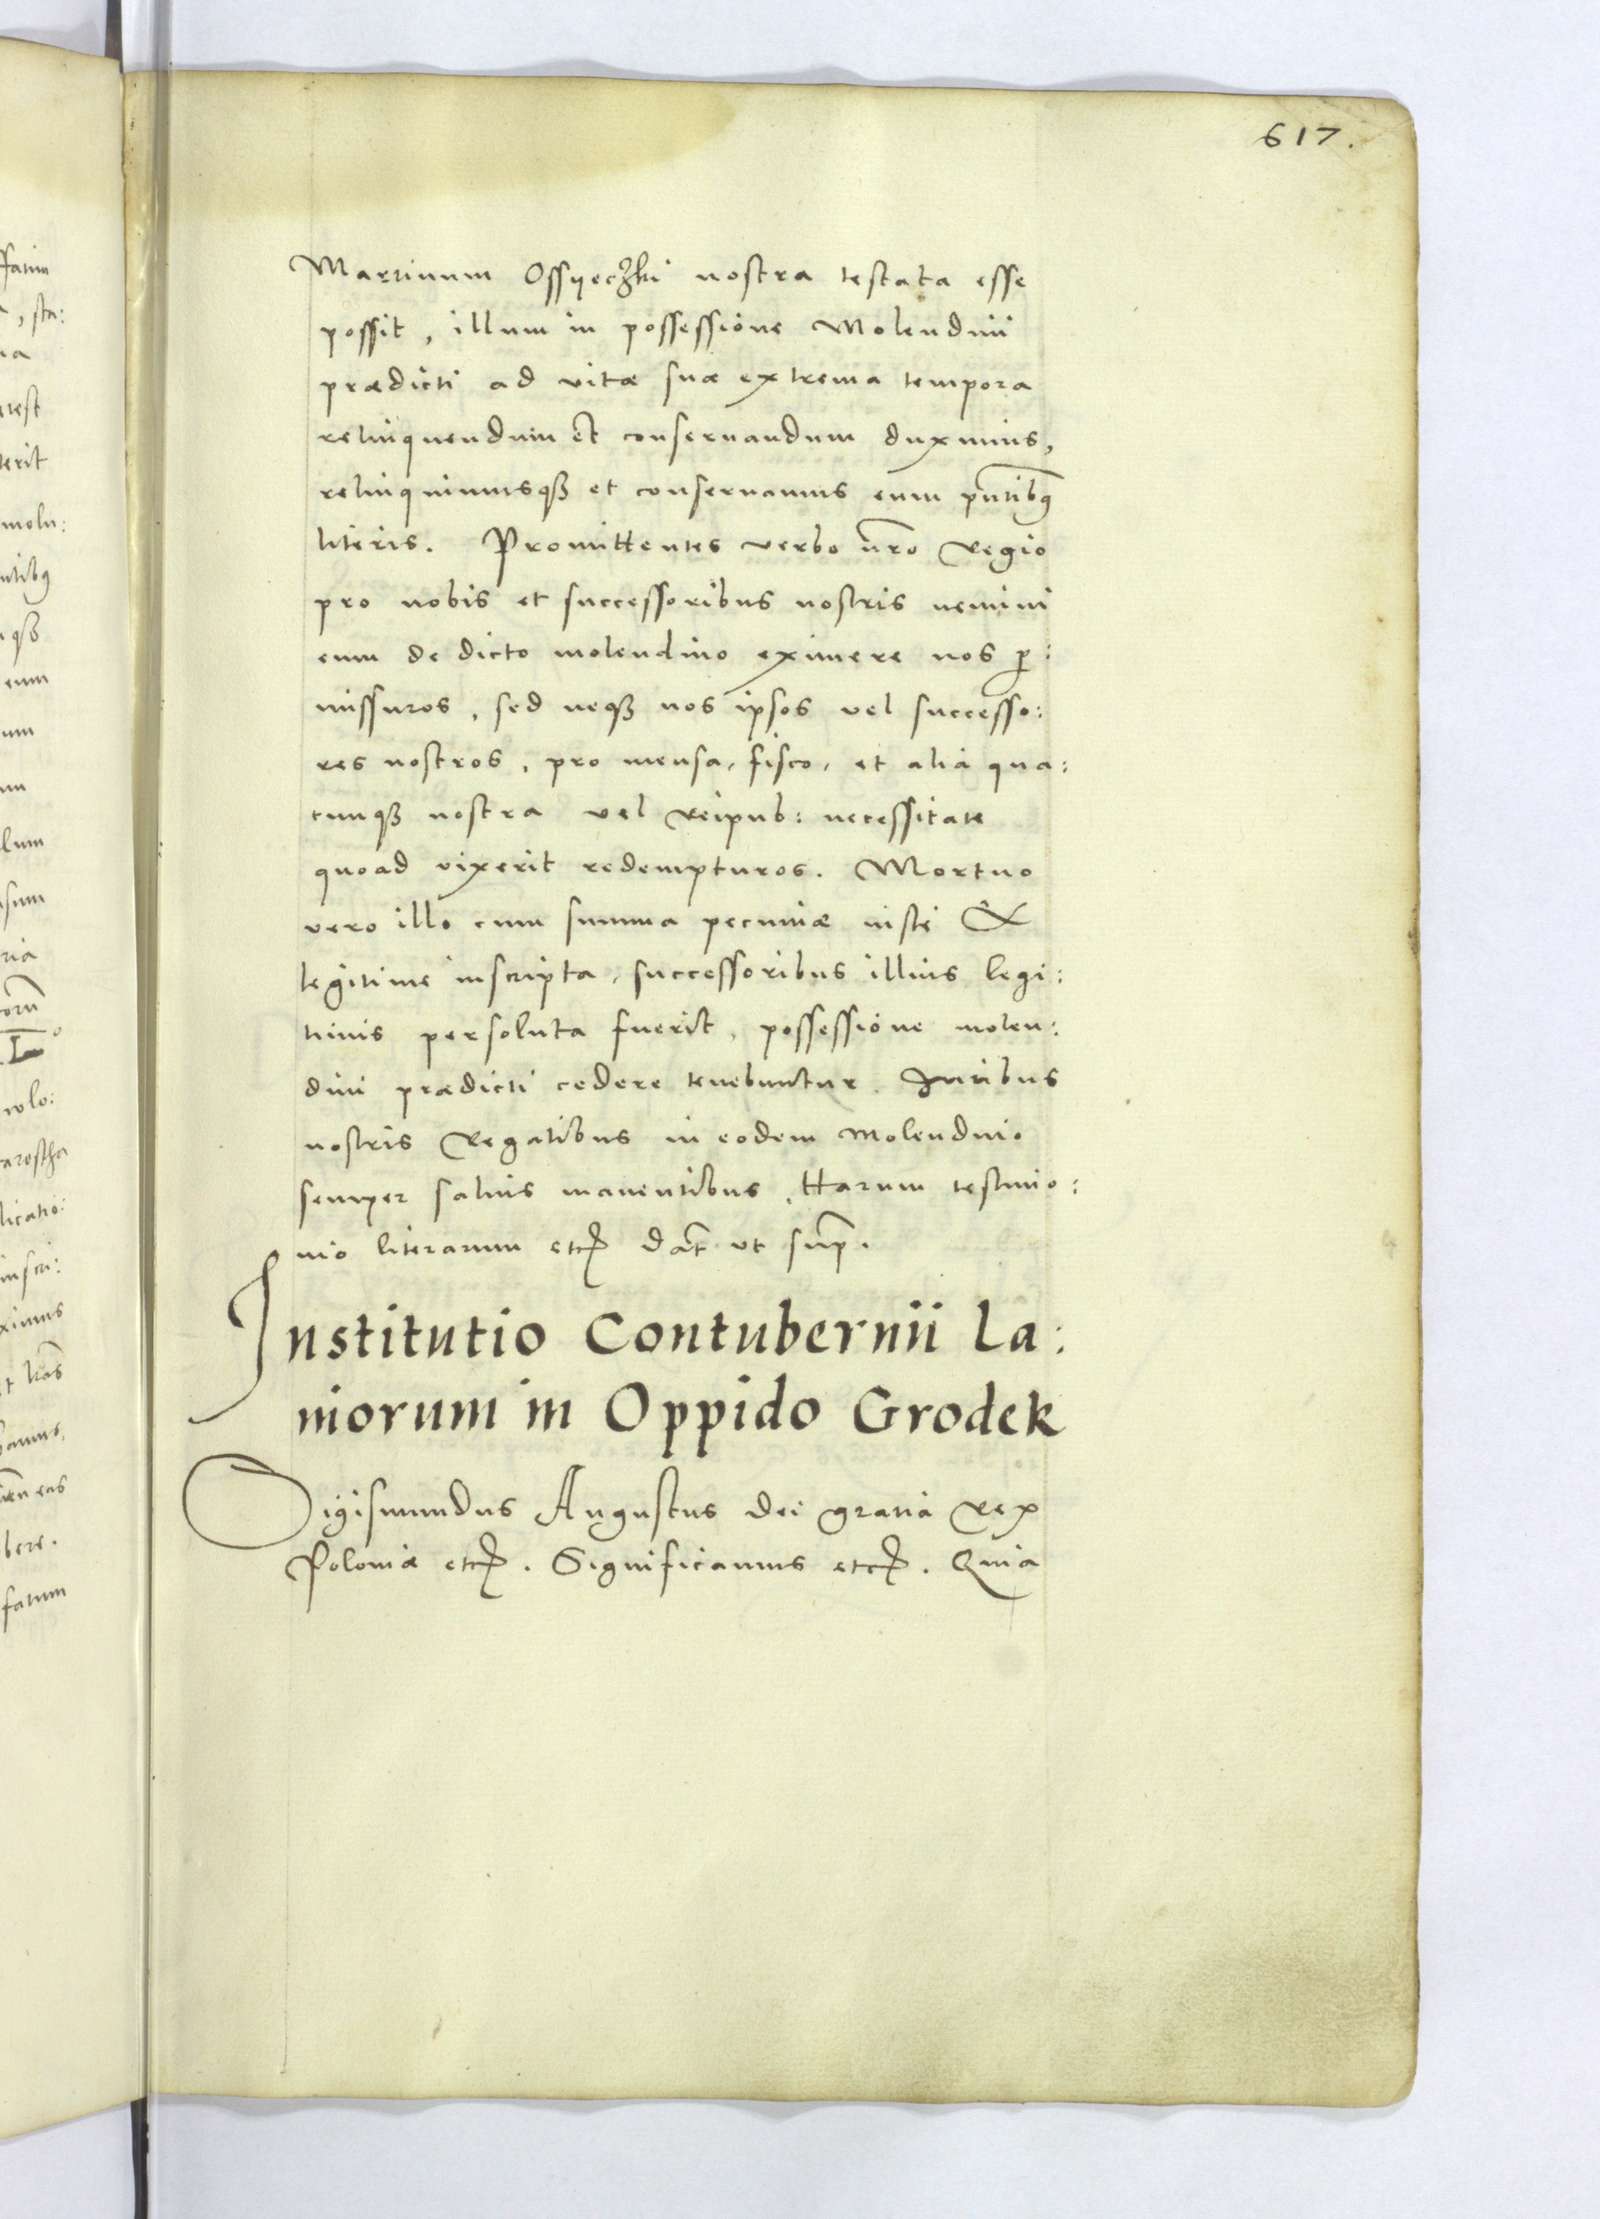 617.
Martinum Ossyeczki nostra testata esse
possit, illum in possessione Molendini
prædicti ad vitæ suæ extrema tempora
relinquendum et conseruandum duximus,
relinquimusqꝫ et conseruamus eum pñtibꝯ
literis. Promittentes verbo nr̃o Regio
pro nobis et successoribus nostris nemini
eum de dicto molendino eximere nos ꝑ:
missuros, sed neqꝫ nos ipsos vel successo:
res nostros, pro mensa, fisco, et alia qua:
cunqꝫ nostra vel Reipub: necessitate
quoad vixerit redempturos. Mortuo
vero illo cum summa pecuniæ iuste &
legitime inscripta, successoribus illius legi:
timis persoluta fuerit, possessione molen:
dini prædicti cedere tenebuntur. Iuribus
nostris Regalibus in eodem Molendino
semper saluis manentibus. Harum testimo:
nio literarum etc̃ dat̃ ut sup̃.
Institutio Contubernii La:
niorum in Oppido Grodek
Sigismundus Augustus dei gratia Rex
Poloniæ etc̃. Significamus etc̃. Quia